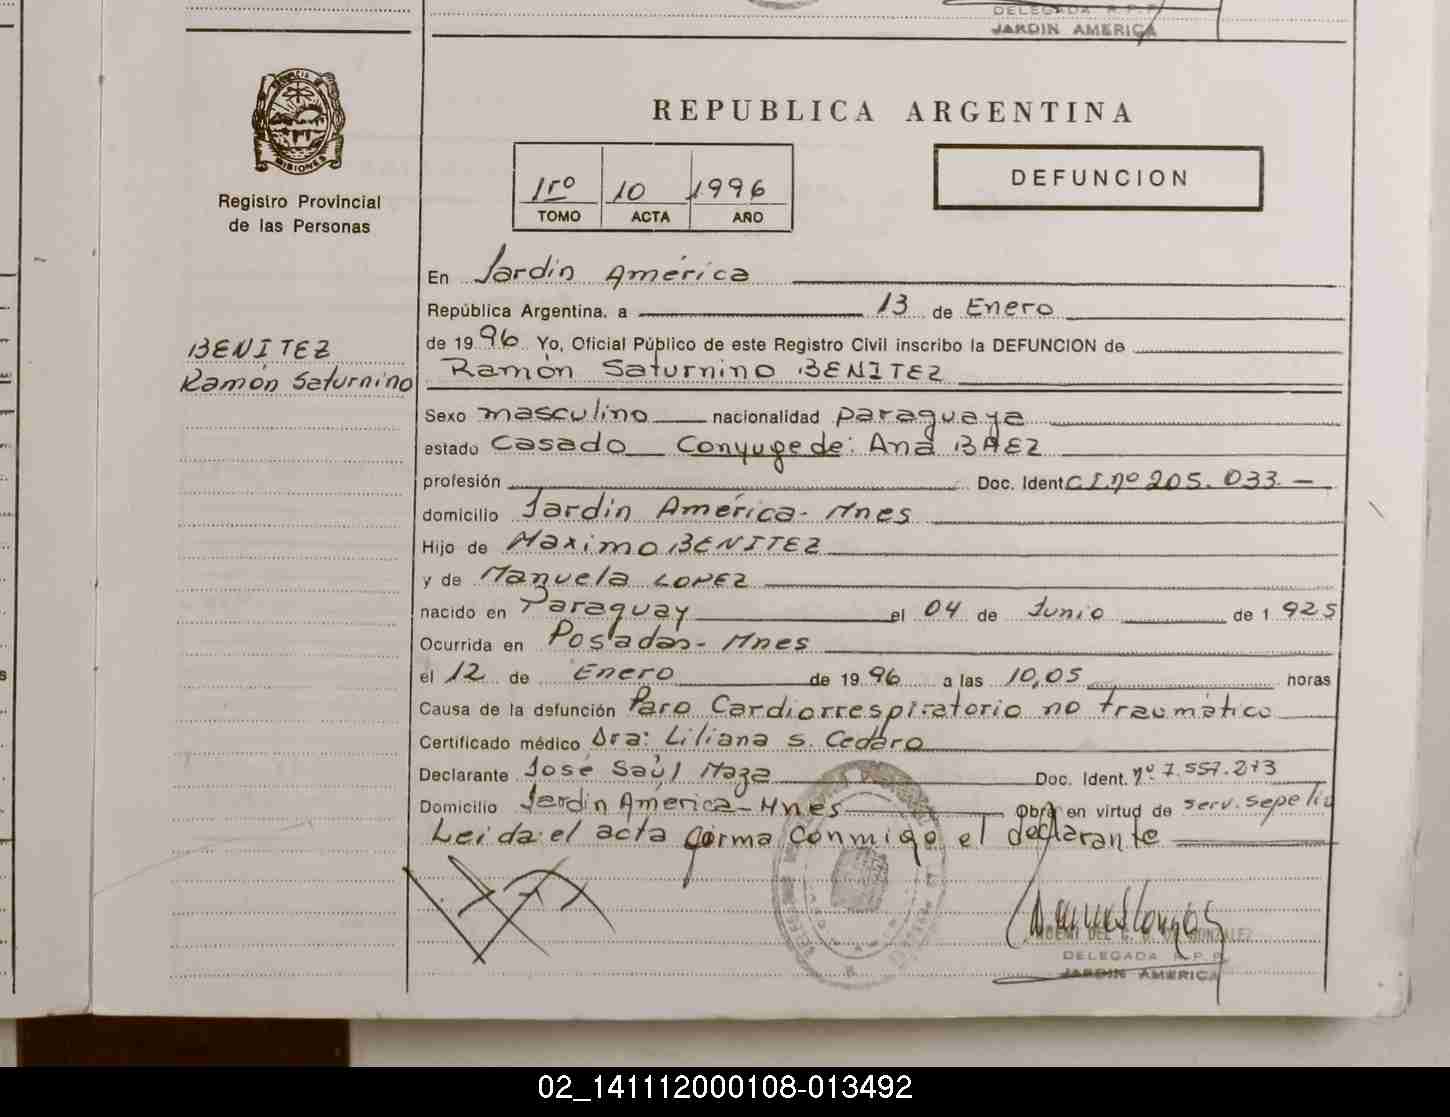 DELEGADA R.P.P.
JARDIN AMERICA
MISIONES
Registro Provincial
de las Personas
BENITEZ
Ramón Saturnino
REPUBLICA ARGENTINA
1ro 10 1996
TOMO ACTA AÑO
DEFUNCION
En Jardin América
República Argentina, a 13 de Enero
de 1996 Yo, Oficial Público de este Registro Civil inscribo la DEFUNCION de
Ramón Saturnino BENITEZ
Sexo masculino nacionalidad paraguaya
estado Casado Conyuge de: Ana BAEZ
profesión Doc. Ident C.I.nº 205.033.—
domicilio Jardin América- Mnes
Hijo de Maximo BENITEZ
y de Manuela LOPEZ
nacido en Paraguay el 04 de Junio de 1925
Ocurrida en Posadas- Mnes
el 12 de Enero de 1996 a las 10,05 horas
Causa de la defunción Paro Cardiorrespiratorio no traumático
Certificado médico Dra: Liliana S. Cedaro
Declarante José Saúl Maza Doc. Ident. nº 7.557.273
Domicilio Jardin América- Mnes Obra en virtud de serv. sepelio
Leida el acta firma conmigo el declarante
GONZALEZ
DELEGADA R.P.P.
JARDIN AMERICA
02_141112000108-013492